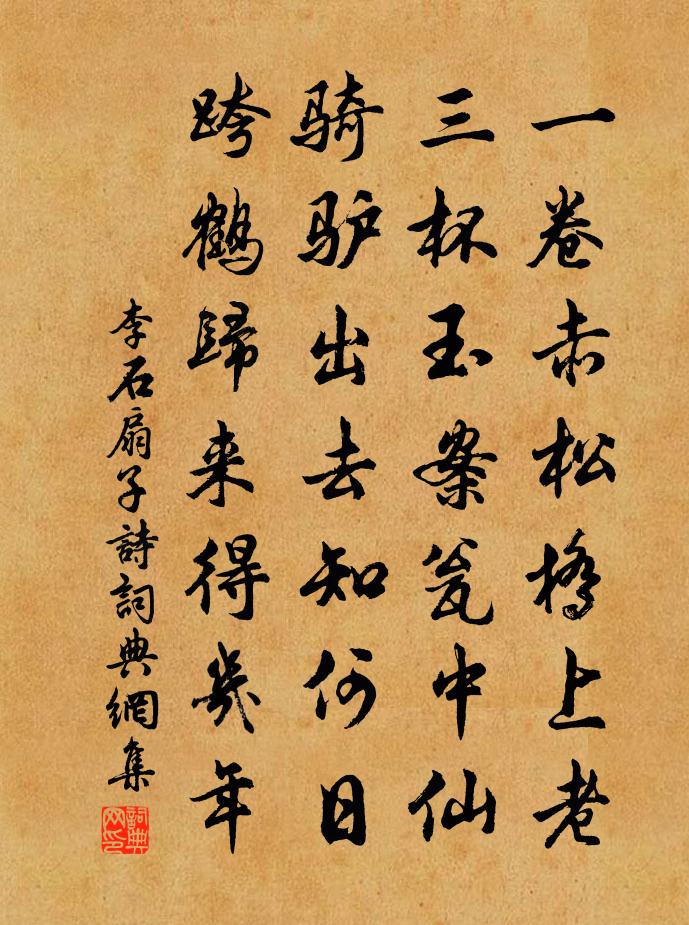 一卷赤松桥上老
三杯玉案瓮中仙
骑驴出去知何日
跨鹤歸来得幾年
李石扇子詩詞典網集
詞典网印